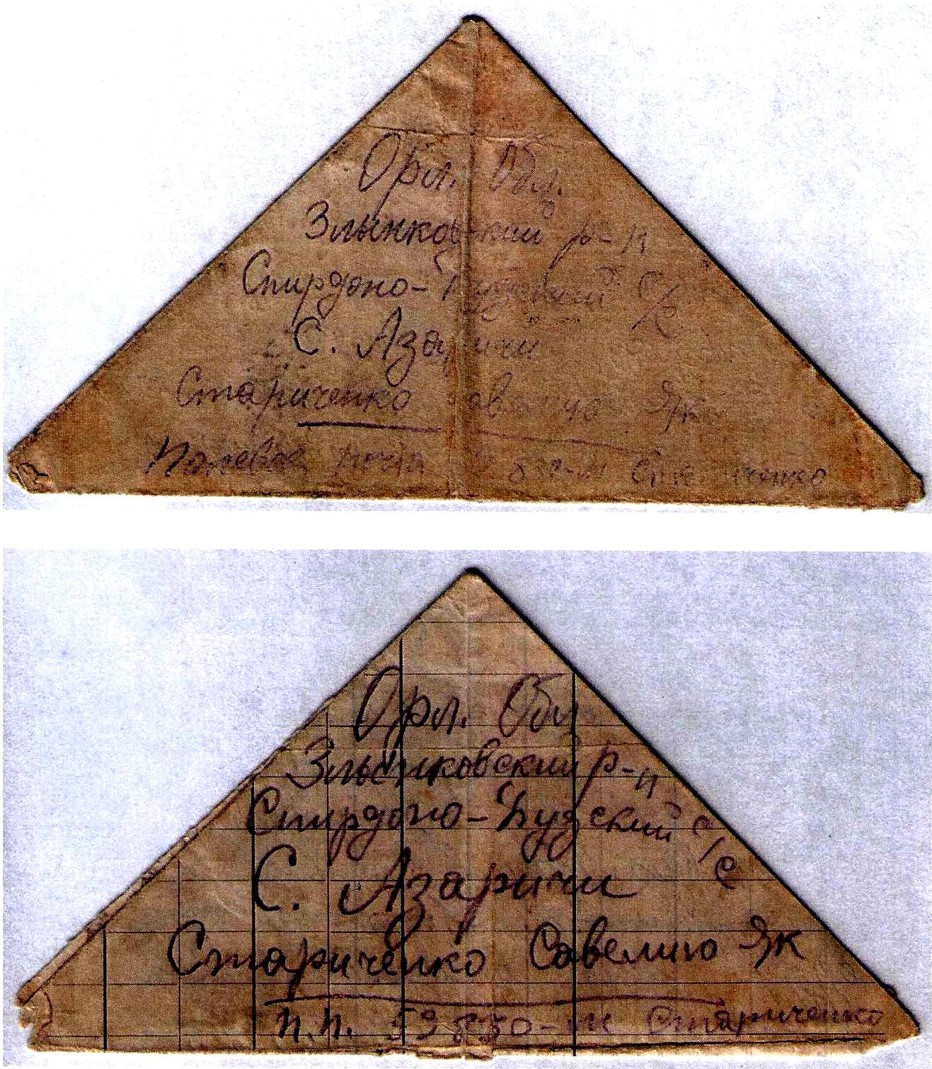 Орл. Обл.
Злынковский р-н
Спирдоно-Будский с/с
С. Азаричи
Стариченко Як
Полевая почта Стариченко
Орл. Обл
Злынковский р-н
Спирдоно-Будский с/с
С. Азаричи
Стариченко Савелию Як
п.п. Стариченко